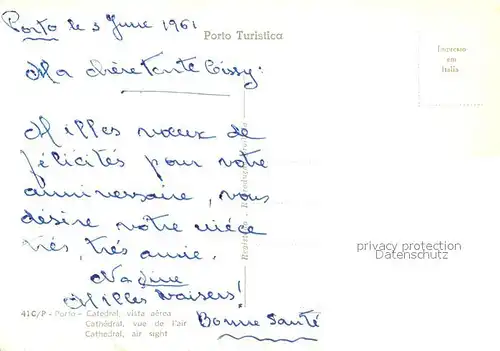 Porto le 3 June 1961
Porto Turistica
Impresso
em
Italia
Ma chère tante Cissy:
Milles vœux de
félicités pour votre
anniversaire, vous
désire votre nièce
très, très amie.
Nadine
Milles baisers!
Bonne Santé
Registada - Reprodução
privacy protection
Datenschutz
41C/P - Porto - Catedral, vista aérea
Cathédral, vue de l'air
Cathedral, air sight